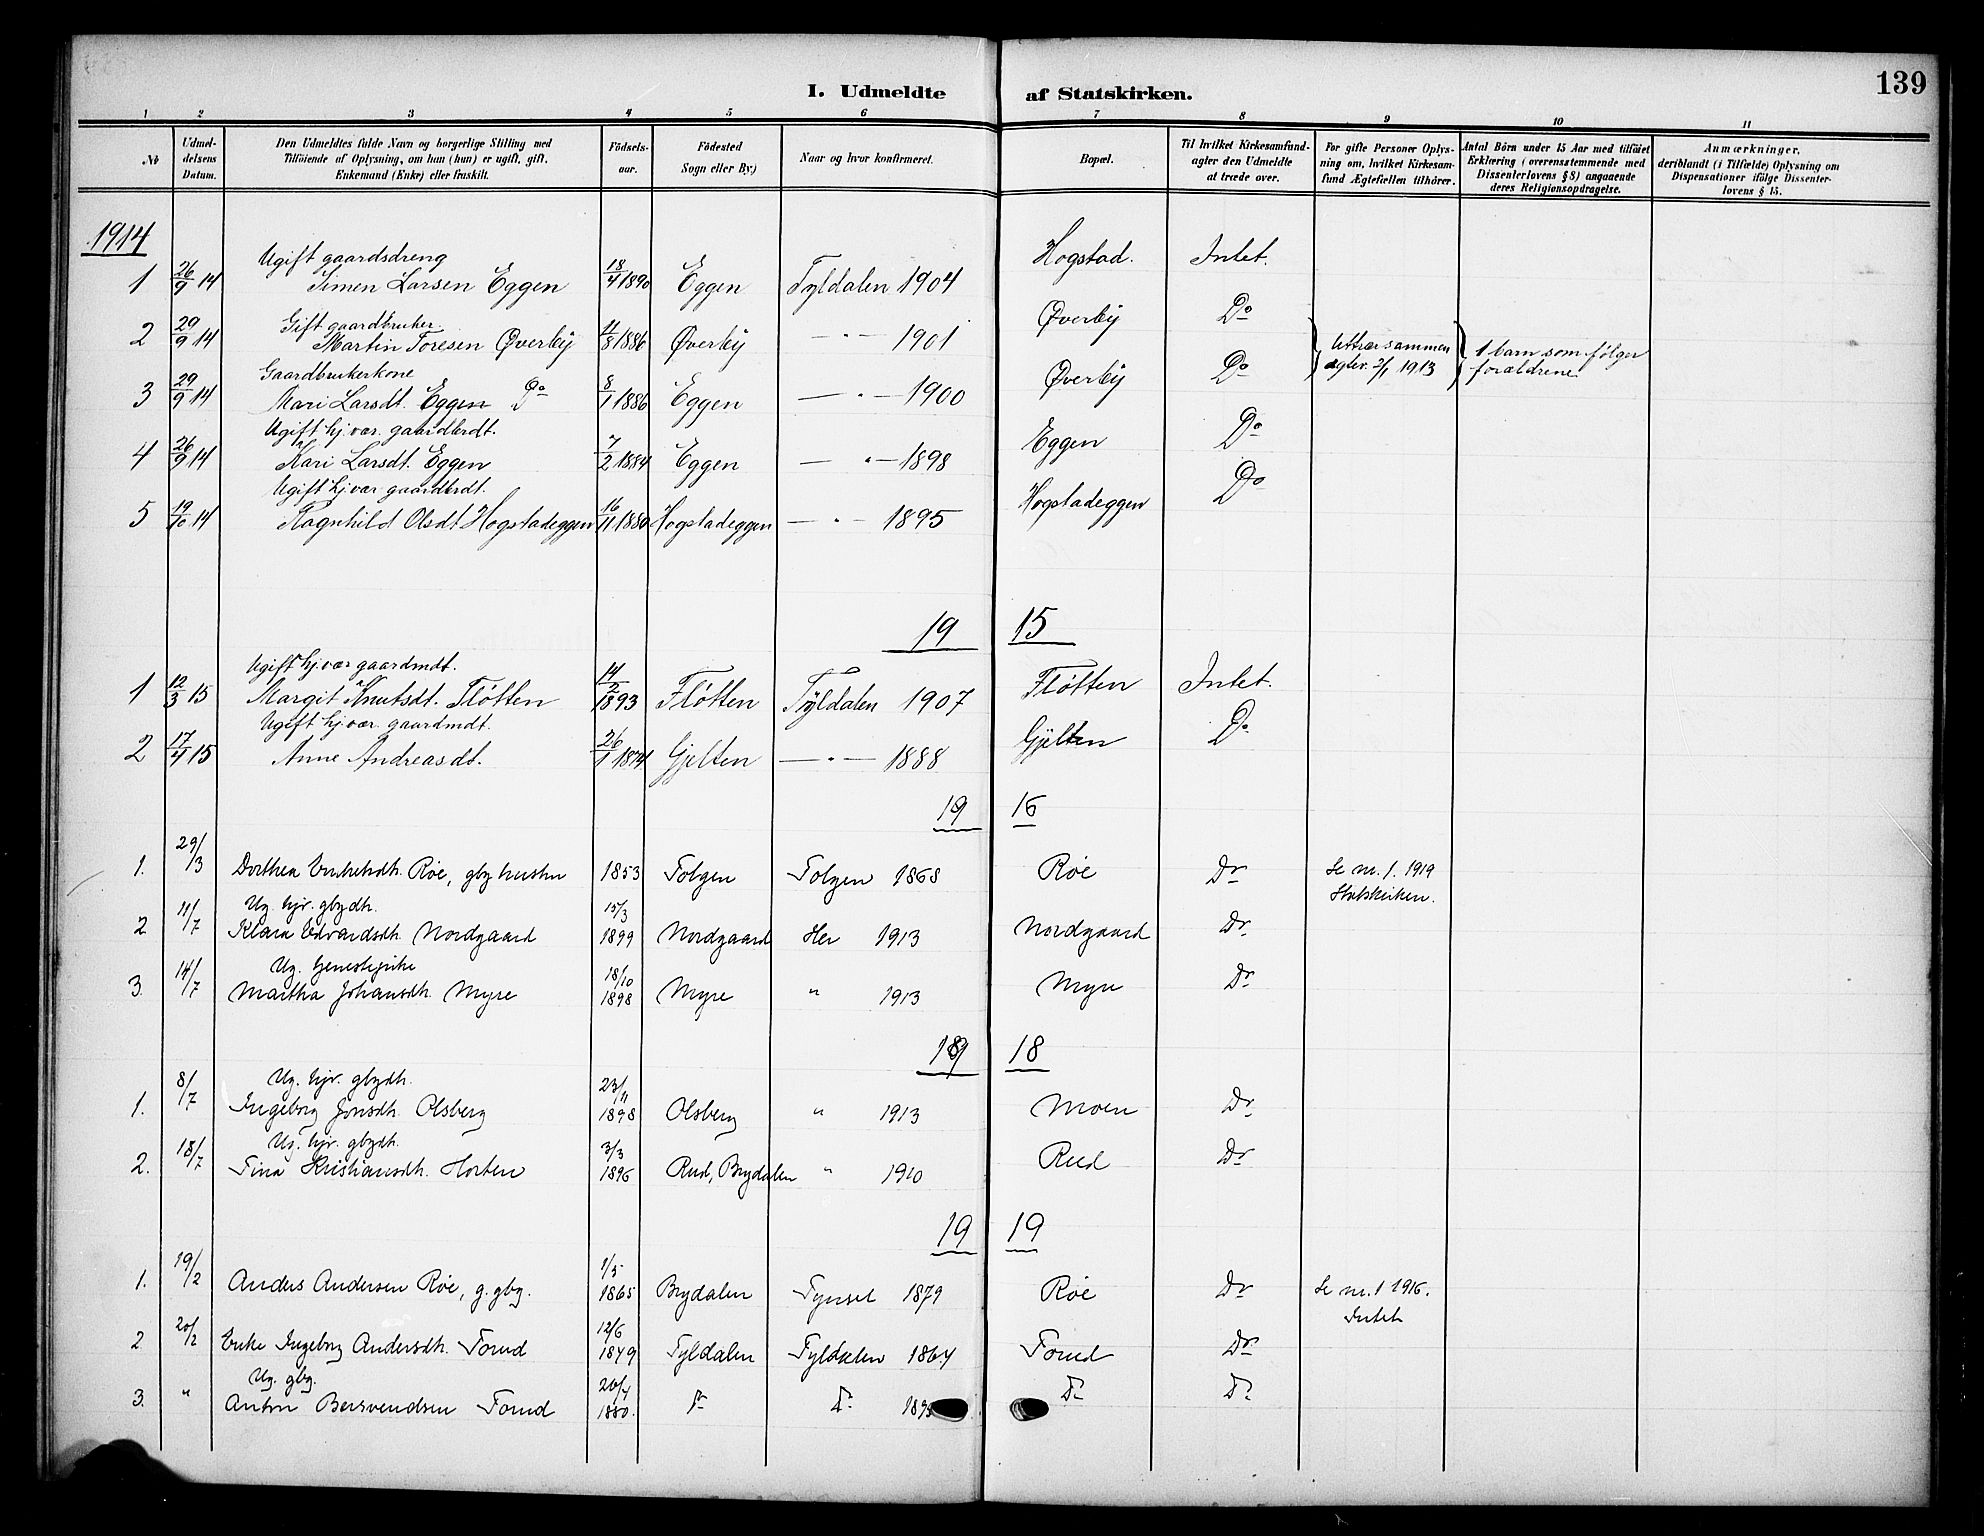 139
I. Udmeldte af Statskirken.
1 2 3 4 5 6 7 8 9 10 11
No
Udmeldelsens Datum.
Den Udmeldtes fulde Navn og borgerlige Stilling med
Tilföiende af Oplysning, om han (hun) er ugift, gift,
Enkemand (Enke) eller fraskilt.
Födselsaar.
Födested
Sogn eller By.)
Naar og hvor konfirmeret.
Bopæl.
Til hvilket Kirkesamfund
agter den Udmeldte
at træde over.
For gifte Personer Oplysning om, hvilket Kirkesamfund Ægtefællen tilhörer.
Antal Börn under 15 Aar med tilföiet
Erklæring (overensstemmende med
Dissenterlovens § 8) angaaende
deres Religionsopdragelse.
Anmærkninger,
deriblandt (i Tilfælde) Oplysning om
Dispensationer ifölge Dissenterlovens § 15.
1914
Ugift gaardsdreng Hogstad. Intet.
1 26/9 14 Simen Larsen Eggen 18/4 1890 Eggen Tyldalen 1904
Gift gaardbruker Øverby Do
2 29/9 14 Martin Toresen Øverby 4/8 1886 Øverby — " — 1901
Gaardbrukerkone Øverby Do
3 29/9 14 Mari Larsdt. Eggen Do 8/1 1886 Eggen — " — 1900
sammen 1913
1 barn som følger
forældrene
Ugift hj.vær. gaardbrdt. Eggen Do
4 26/9 14 Kari Larsdt. Eggen 7/2 1884 Eggen — " — 1898
Ugift hj.vær gaardbrdt. Hogstadeggen Do
5 19/10 14 Ragnhild Olsdt Hogstadeggen 16/11 1880 Hogstadeggen — " — 1895
19 15
Ugift hj.vær gaardmdt. Fløtten Intet.
1 12/3 15 Margit Knutsdt. Fløtten 14/2 1893 Fløtten Tyldalen 1907
Ugift hj.vær. gaardmdt. Gjelten Do
2 17/4 15 Anne Andreasdt. 26/1 1874 Gjelten — " — 1888
19 16
1. 29/3 Dorthea Røe, gbg hustru 1853 Tolgen Tolgen 1868 Røe Do Se nr. 1. 1919
Statskirken.
Ug. hjv. gbgdh.
2 11/7 Klara Edvardsdh. Nordgaard 15/3 1899 Nordgaard Her 1913 Nordgaard Do
Ug. tjenestepike
3. 14/7 Martha Johansdh. Myre 18/10 1898 Myre " 1913 Myre Do
19 18
Ug. hjv. gbgdh.
1. 8/7 Ingeborg Jonsdh. Olsberg 23/11 1898 Olsberg " 1913 Moen Do
Ug. hjv. gbgdh.
2. 18/7 Tina Kristiansdh. Horten 3/3 1896 Rud, Brydalen " 1910 Rud Do
19 19
1. 19/2 Anders Andersen Røe, g. gbg. 1/5 1865 Brydalen Tynset 1879 Røe Do Se nr. 1 1916.
Intet
2 20/2 Enke Ingeborg Andersdh. Tomd 12/6 1849 Tyldalen Tyldalen 1864 Tomd Do
Ug. gbg.
3. " Anton Bersvendsen Tomd 20/4 1880. Do Do Do Do